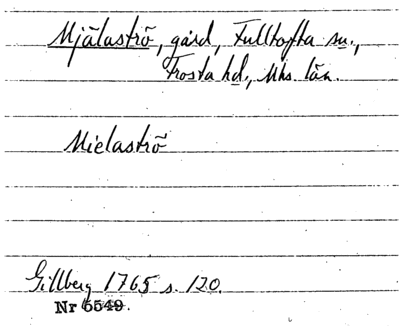 Mjälaströ, gård, Fulltofta sn.,
Frosta hd., Mhs. län.
Mielaströ
Gillberg 1765 s. 120.
Nr 5549.